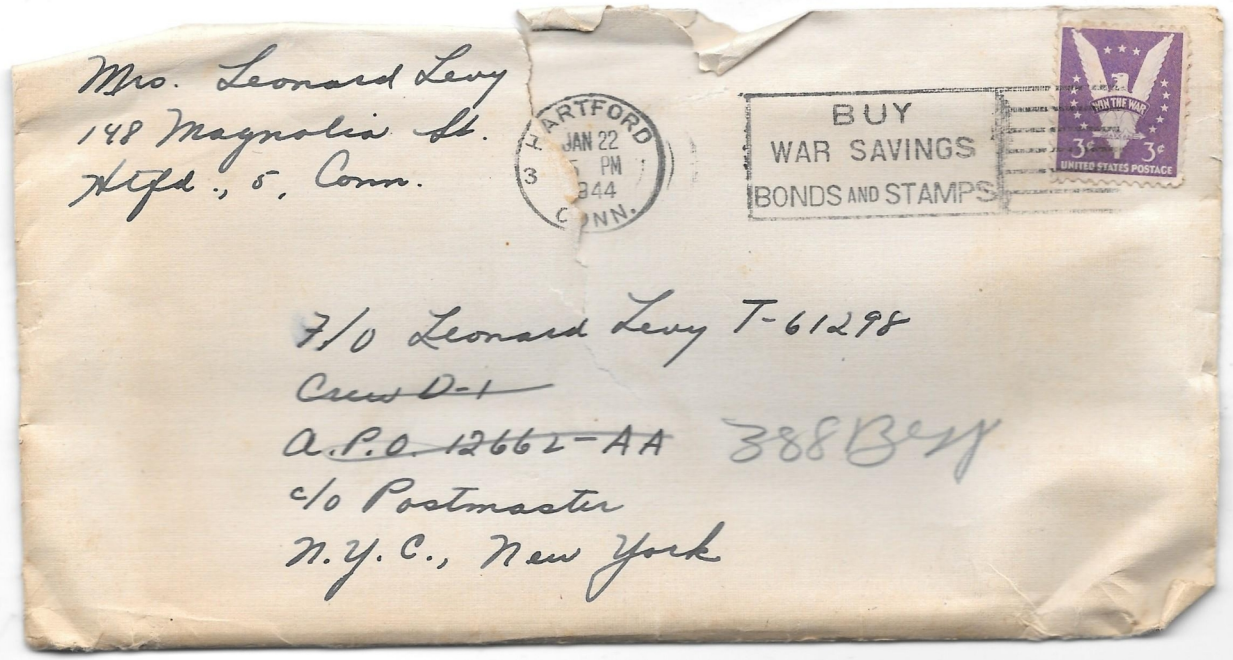 Mrs. Leonard Levy
148 Magnolia St.
Htfd., 5, Conn.
HARTFORD
JAN 22
5 PM
1944
3
CONN.
BUY
WAR SAVINGS
BONDS AND STAMPS
WIN THE WAR
3¢ 3¢
UNITED STATES POSTAGE
F/O Leonard Levy T-61298
Crew D-1
A.P.O. 12662-AA 388
c/o Postmaster
N.Y.C., New York